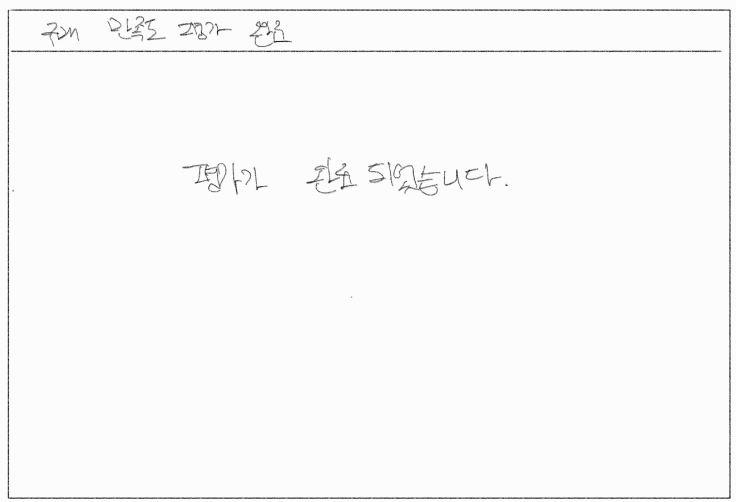 구매 만족도 평가 완료
평가가 완료 되었습니다.